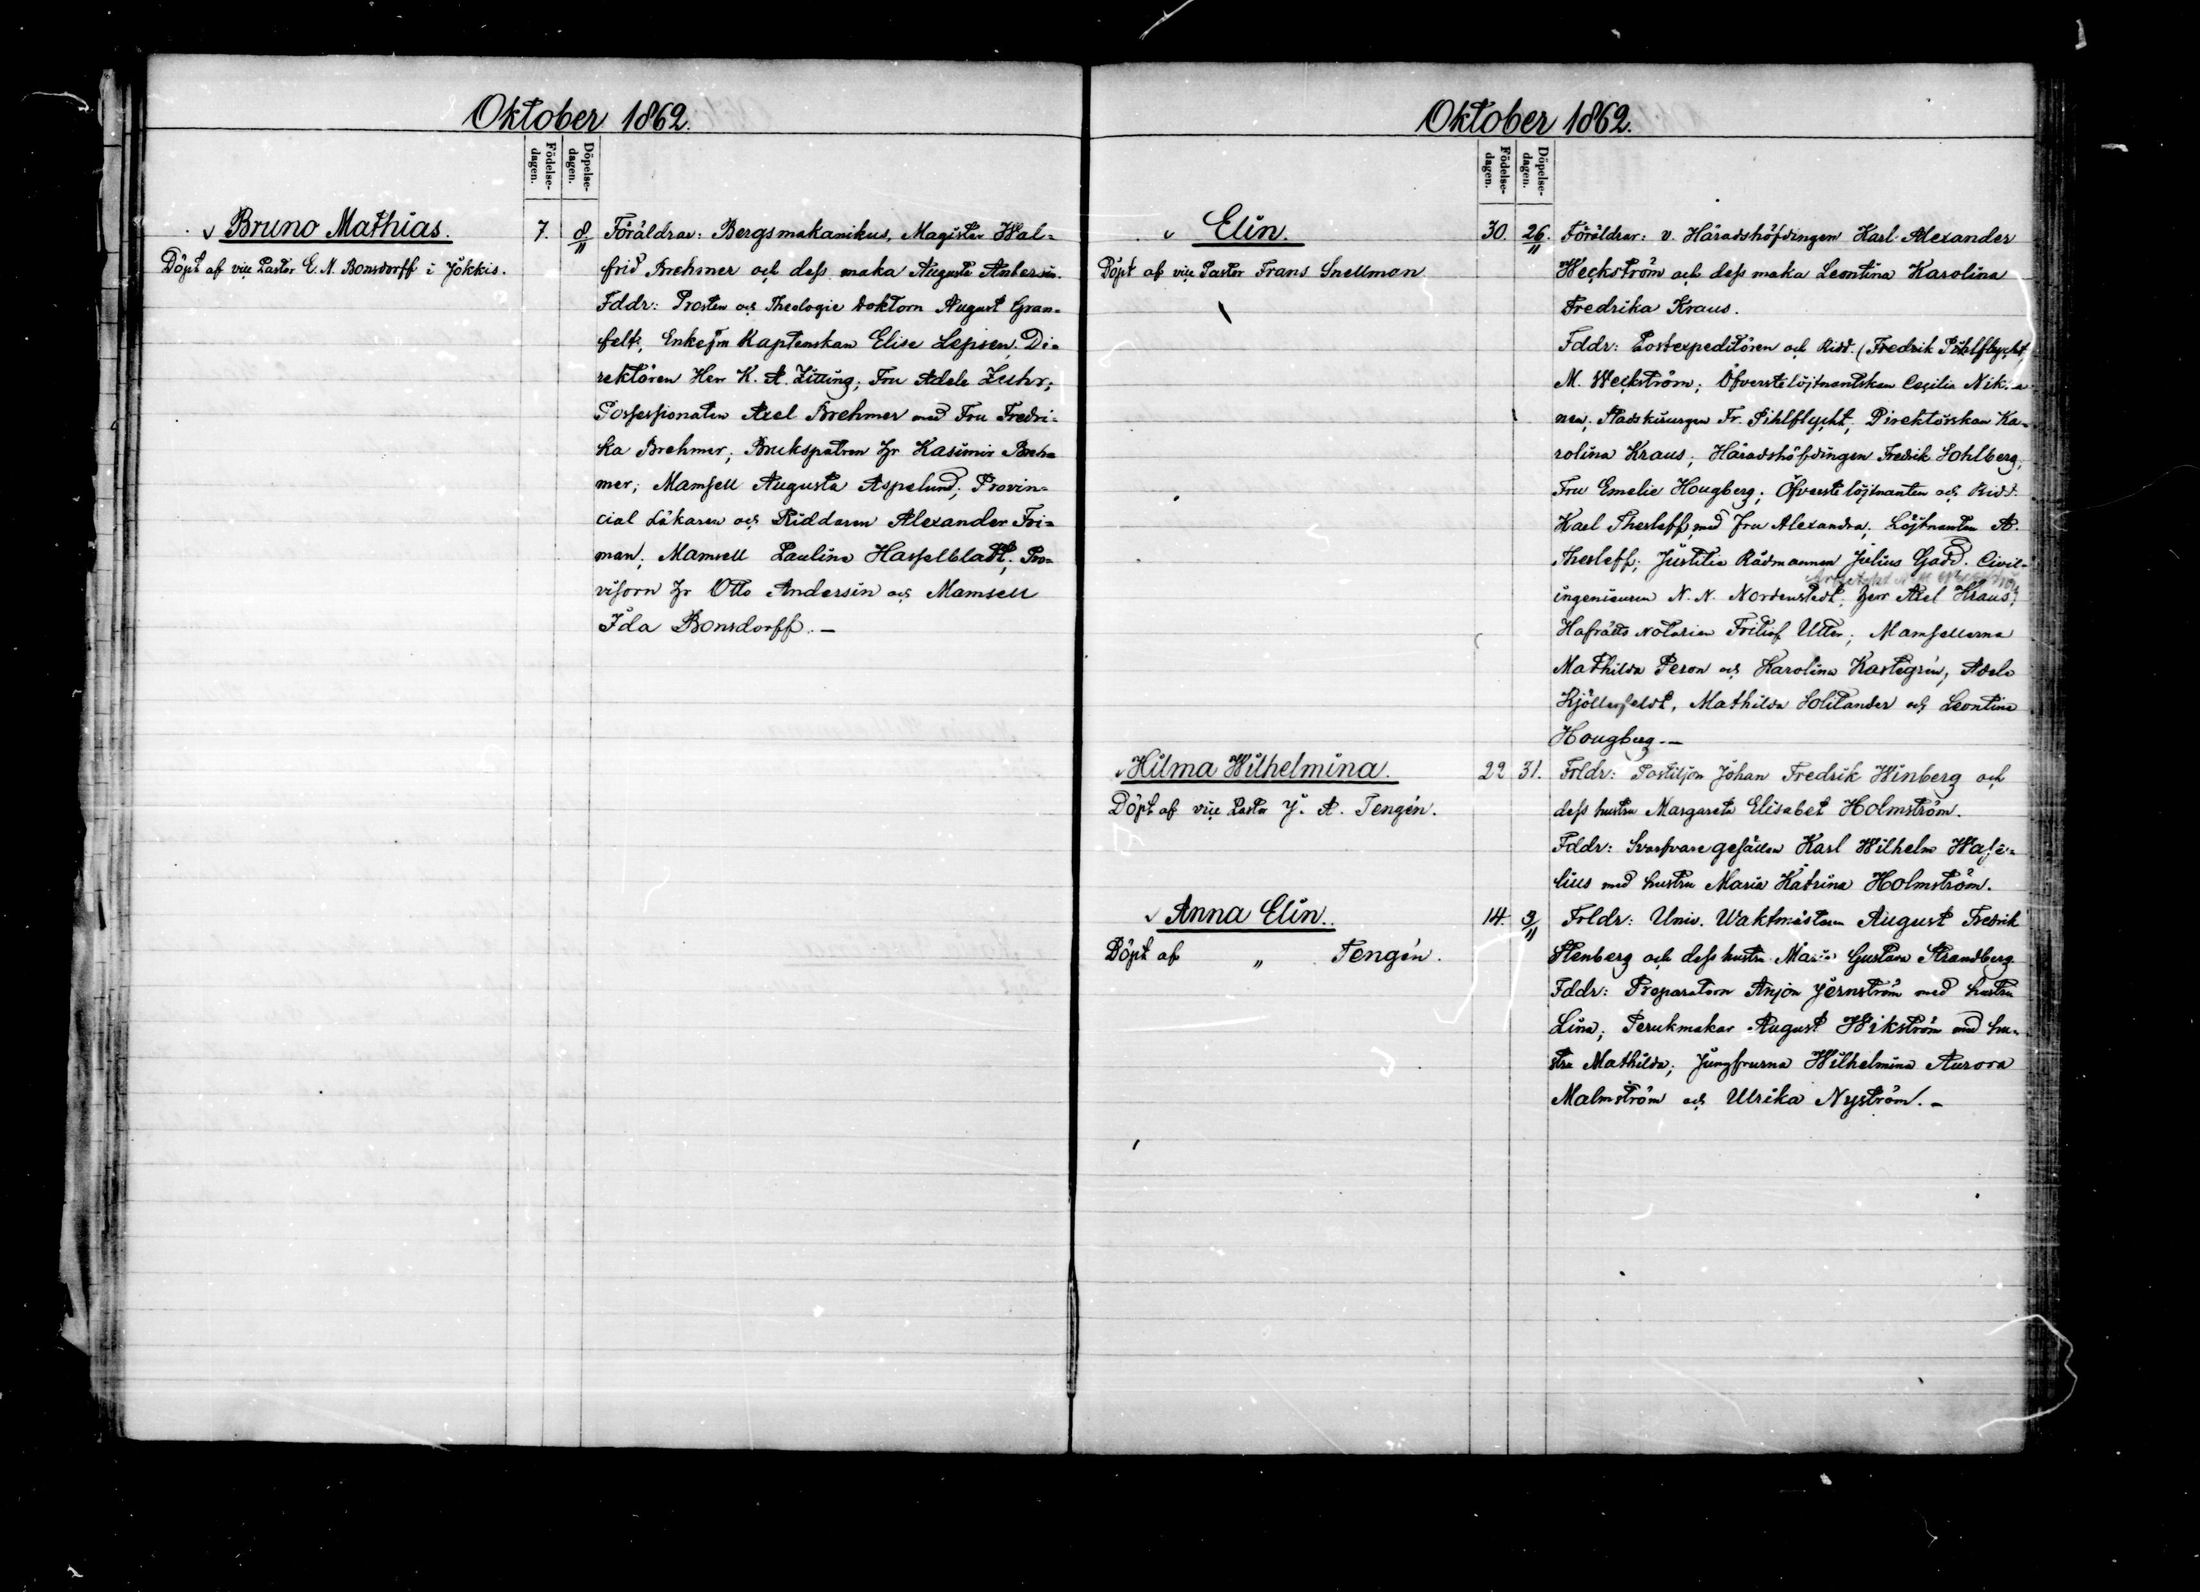 Oktober 1862.
Födelse-
dagen.
Döpelse-
dagen.
Bruno Mathias.
Döpt af vice Pastor E. N. Bonsdorff i Jokkis.
7. 8/11
Föräldrar: Bergsmekanikus, Magister Wal-
frid Brehmer och dess maka Augusta Andersin.
Fddr: Prosten och Theologie Doktorn August Gran-
felt; Enkefru Kaptenskan Elise Lepsen. Di-
rektören Herr K. A. Zitting; Fru Adele Zuhr;
Possessionaten Axel Brehmer med Fru Fredri-
ka Brehmer; Brukspatron Hr Kasimir Breh-
mer; Mamsell Augusta Aspelund; Provin-
cial Läkaren och Riddaren Alexander Fri-
man; Mamsell Paulina Hasselbladt; Pro-
visorn Hr Otto Andersin och Mamsell
Ida Bonsdorff. —
Oktober 1862.
Födelse-
dagen.
Döpelse-
dagen.
Elin.
Döpt af vice Pastor Frans Snellman
30. 26/11.
Föräldrar: v. Häradshöfdingen Karl Alexander
Weckström och dess maka Leontina Karolina
Fredrika Kraus.
Fddr: Postexpeditören och Ridd. (Fredrik Pihlflycht,
M. Weckström; Öfverstelöjtnantskan Cecilia
nen; Stadskirurgen Fr. Pihlflycht; Direktörskan Ka-
rolina Kraus; Häradshöfdingen Fredrik Sohlberg;
Fru Emelie Hougberg; Öfverstelöjtnanten och Ridd.
Karl Thesleff med fru Alexandra; Löjtnanten A.
Thesleff; Justitie Rådmannen Julius Gadd. Civil-
ingenieuren N. N. Nordenstedt; Herr Axel Kraus;
Hofrätts Notarien Fritiof Utter; Mamsellerna
Mathilda Peron och Karolina Kastegrén, Adele
Kjöllerfeldt, Mathilda Solitander och Leontine
Hougberg. —
Hilma Wilhelmina.
Döpt af vice Pastor J. A. Tengén.
22 31.
Frldr: Postiljon Johan Fredrik Winberg och
dess hustru Margareta Elisabet Holmström.
Fddr: Svarfvaregesällen Karl Wilhelm Wase-
lius med hustru Maria Katrina Holmström.
Anna Elin.
Döpt af „ Tengén.
14. 9/11
Frldr: Univ. Waktmästaren August Fredrik
Stenberg och dess hustru Maria Gustava Strandberg.
Fddr: Preparatorn Anjon Jernström med hustru
Lina; Perukmakar August Wikström med hu-
stru Mathilda; Jungfrurna Wilhelmina Aurora
Malmström och Ulrika Nyström. —